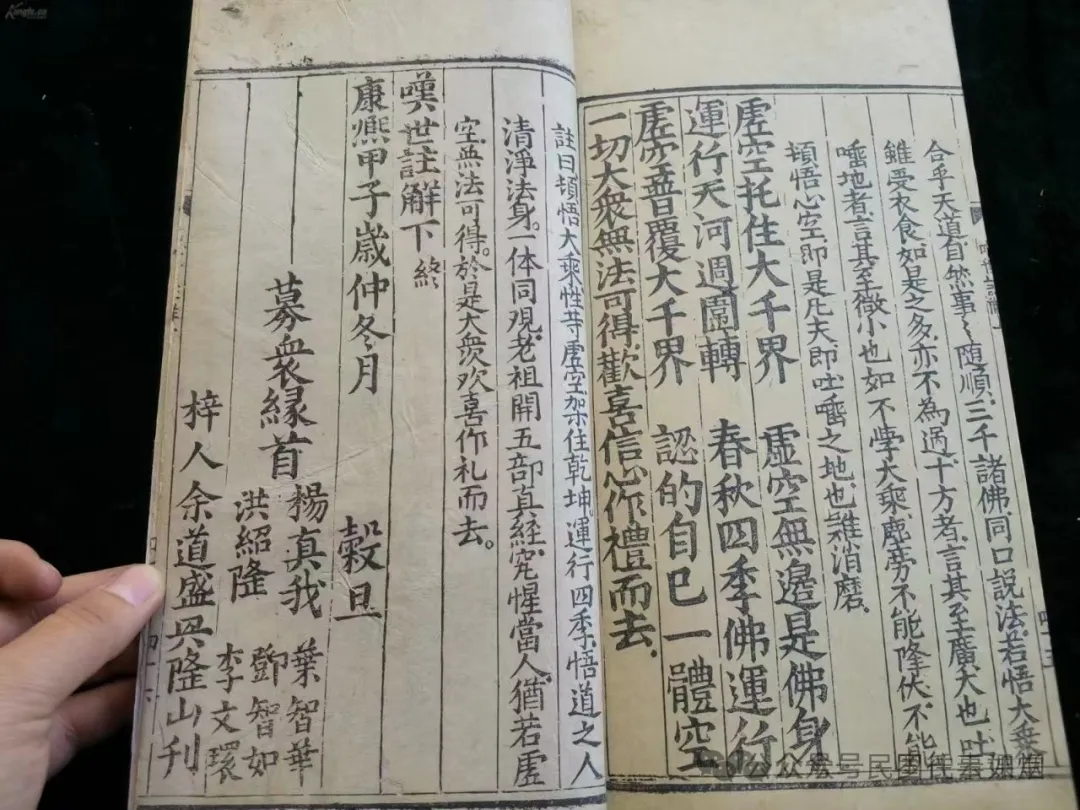 合乎天道自然事〻随順三千諸佛同口說法若悟大乘
雖受衣食如是之多亦不為過十方者言其至廣大也吐
唾地者言其至微小也如不學大乘虛勞不能降伏不能
頓悟心空即是凡夫即吐唾之地也難消磨
虛空托住大千界 虛空無邊是佛身
運行天河週圍轉 春秋四季佛運行
虛空普覆大千界 認的自己一體空
一切大衆無法可得歡喜信心作禮而去
註曰頓悟大乘性等虛空架住乾坤運行四季悟道之人
清淨法身一体同观老祖開五部真經究惺當人猶若虛
空無法可得於是大衆欢喜作礼而去
嘆世註解下 終
康熈甲子歲仲冬月 穀旦
募衆緣首 楊真我 葉智華
洪紹隆 鄧智如
李文環
梓人余道盛興隆山刊
Kongfz.cn
公众号